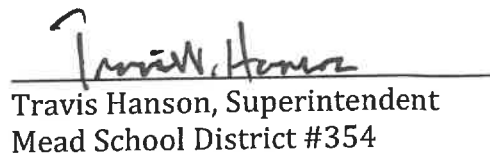 Travis W. Hanson
Travis Hanson, Superintendent
Mead School District #354